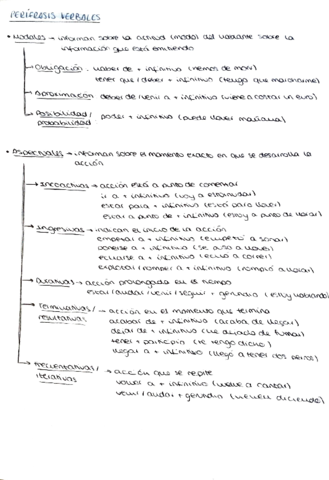 PERÍFRASIS VERBALES
• Modales → informan sobre la actitud (modo) del hablante sobre la
información que está emitiendo
→ Obligación → haber de + infinitivo (hemos de morir)
tener que / deber + infinitivo (tengo que marcharme)
→ Aproximación deber de / venir a + infinitivo (viene a costar un euro)
→ Posibilidad / probabilidad → poder + infinitivo (puede llover mañana)
• Aspectuales → informan sobre el momento exacto en que se desarrolla la
acción
→ Incoactivas → acción está a punto de comenzar
ir a + infinitivo (voy a estornudar)
estar para + infinitivo (está para llover)
estar a punto de + infinitivo (estoy a punto de llorar)
→ Ingresivas → indican el inicio de la acción
empezar a + infinitivo (empezó a sonar)
ponerse a + infinitivo (se puso a llover)
echarse a + infinitivo (echó a correr)
explotar / romper a + infinitivo (rompió a llorar)
→ Durativas → acción prolongada en el tiempo
estar / andar / venir / seguir + gerundio (estoy votando)
→ Terminativas / resultativas → acción en el momento que termina
acabar de + infinitivo (acaba de llegar)
dejar de + infinitivo (he dejado de fumar)
tener + participio (te tengo dicho)
llegar a + infinitivo (llegó a tener dos perros)
→ Frecuentativas / iterativas → acción que se repite
volver a + infinitivo (vuelve a cantar)
venir / andar + gerundio (vienen diciendo)